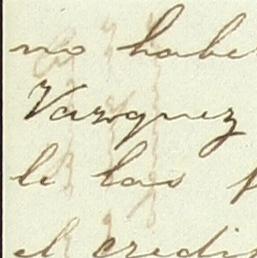 no habe
Vazquez
le las p
el credi